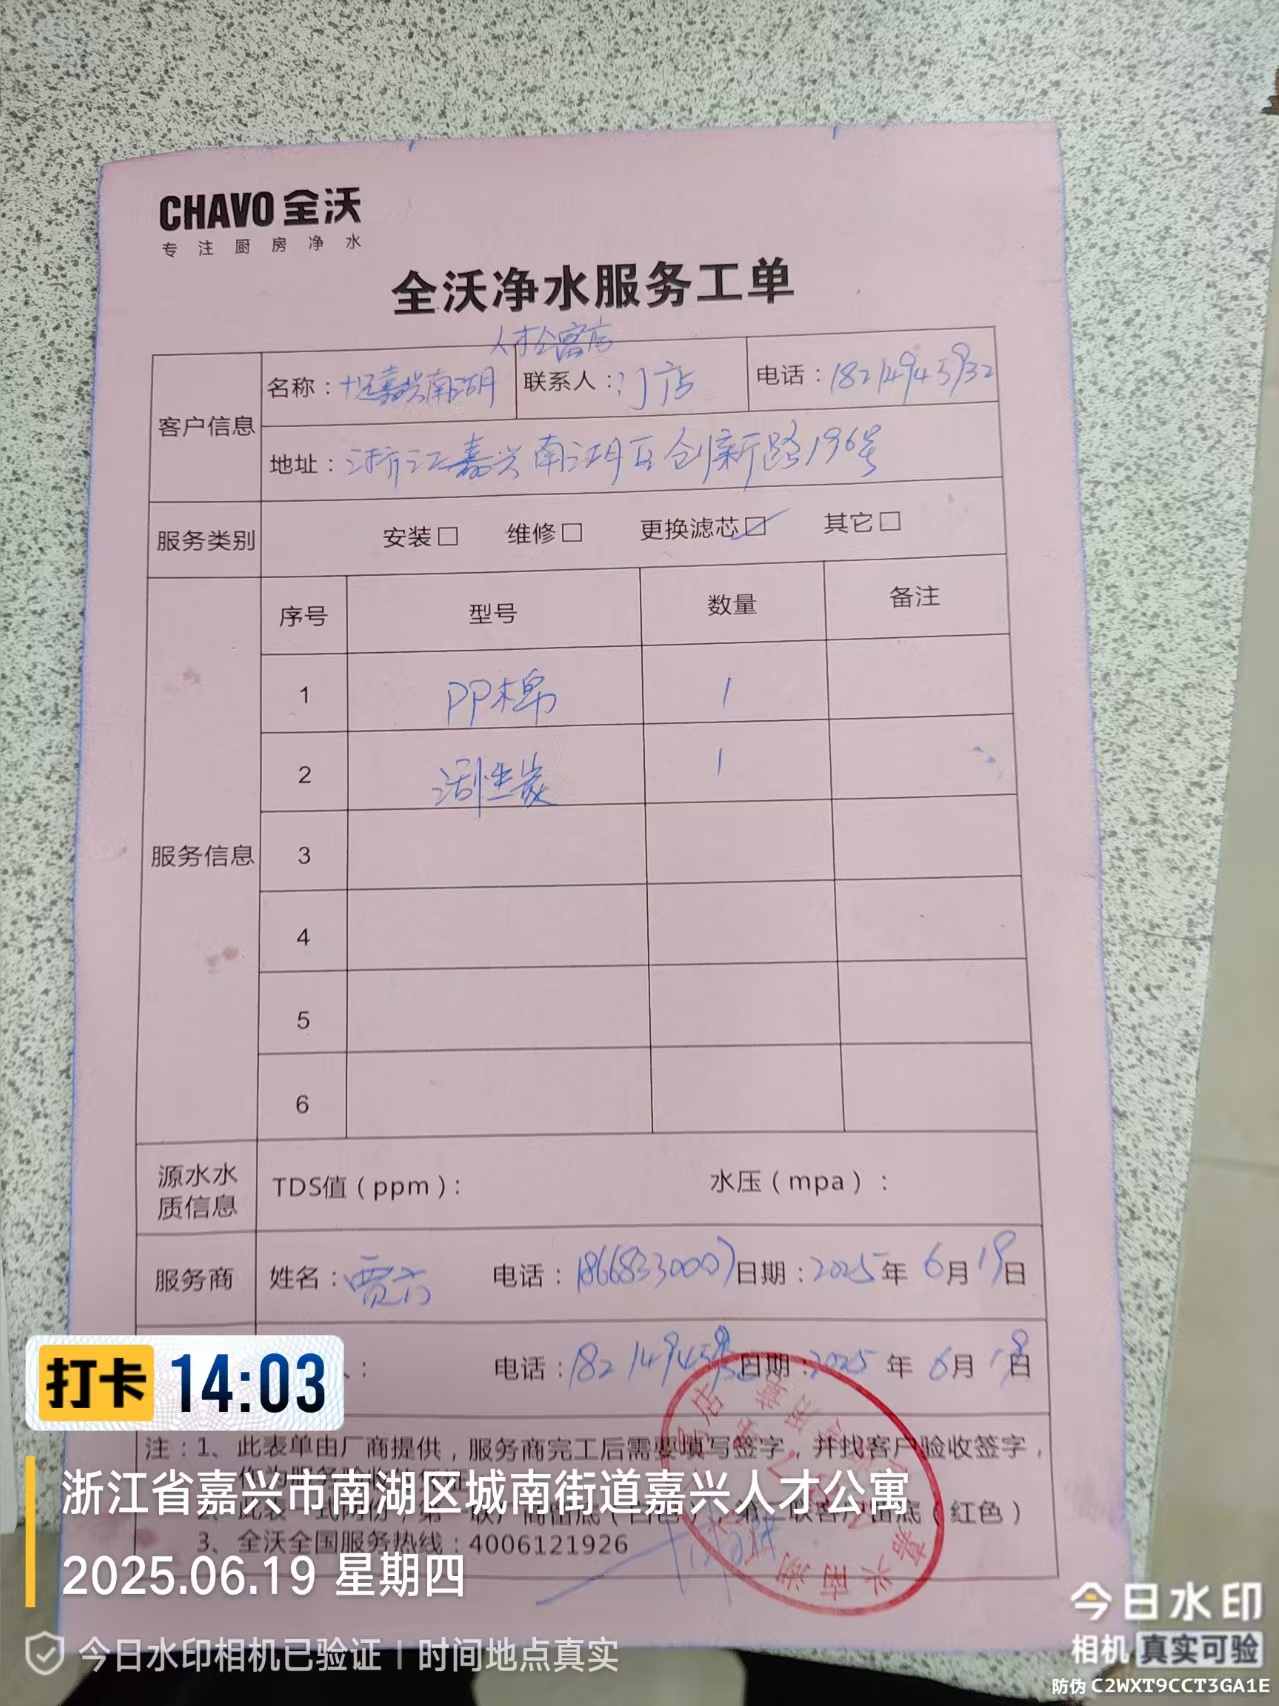 CHAVO 全沃
专注厨房净水
全沃净水服务工单
人才公寓店
客户信息 名称：十足嘉兴南湖 联系人：门店 电话：18214945932
地址：浙江嘉兴南湖区创新路196号
服务类别 安装□ 维修□ 更换滤芯☑ 其它□
服务信息 序号 型号 数量 备注
1 PP棉 1
2 活性炭 1
3
4
5
6
源水水质信息 TDS值（ppm）： 水压（mpa）：
服务商 姓名：贾六 电话：18668330007 日期：2025年6月19日
电话：18214945932 日期：2025年6月19日
注：1、此表单由厂商提供，服务商完工后需要填写签字，并找客户验收签字，
3、全沃全国服务热线：4006121926
嘉兴南湖
打卡 14:03
浙江省嘉兴市南湖区城南街道嘉兴人才公寓
2025.06.19 星期四
今日水印相机已验证 | 时间地点真实
今日水印
相机 真实可验
防伪 C2WXT9CCT3GA1E